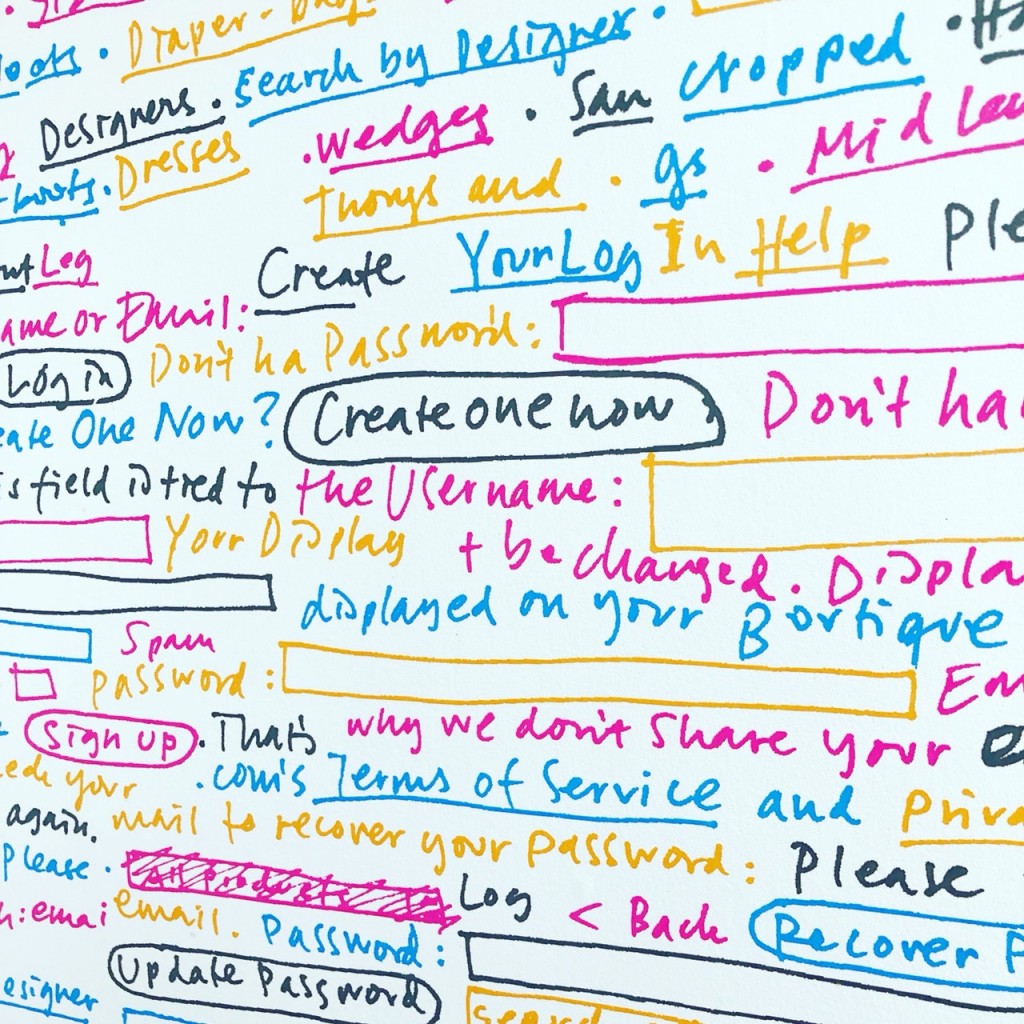 Diaper-bags
• Search by Designer •
Designers. cropped
.wedges • San
boots. Dresses • Mid
thongs and • gs
Leg Create YourLog In Help Ple
ame or Email:
Log in Don't ha Password:
eate One Now? Create one now Don't ha
s field is tred to the Username:
Your Display + be changed. Displa
displayed on your Bortique
Spam
password: Em
Sign up . That's why we don't share your e
your .com's Terms of Service and Priva
again. mail to recover your password: Please
please. Log < Back Recover P
h: emai email. Password:
Update Password
esigner search